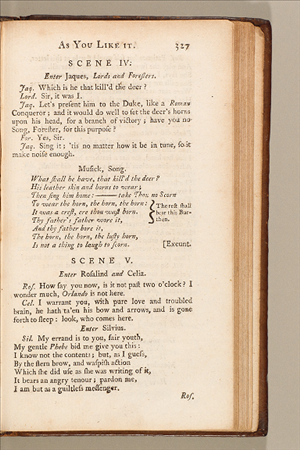 AS YOU LIKE IT. 327
SCENE IV.
Enter Jaques, Lords and Foresters.
Jaq. Which is he that kill'd the deer ?
Lord. Sir, it was I.
Jaq. Let's present him to the Duke, like a Roman
Conqueror ; and it would do well to set the deer's horns
upon his head, for a branch of victory ; have you no
Song, Forester, for this purpose ?
For. Yes, Sir.
Jaq. Sing it ; 'tis no matter how it be in tune, so it
make noise enough.
Musick, Song.
What shall he have, that kill'd the deer ?
His leather skin and horns to wear ;
Then sing him home :—— take Thou no Scorn
To wear the horn, the horn, the horn : The rest shall
It was a crest, ere thou wast born. bear this Bur-
Thy father's father wore it, then.
And thy father bore it,
The horn, the horn, the lusty horn,
Is not a thing to laugh to scorn. [Exeunt.
SCENE V.
Enter Rosalind and Celia.
Ros. How say you now, is it not past two o'clock ? I
wonder much, Orlando is not here.
Cel. I warrant you, with pure love and troubled
brain, he hath ta'en his bow and arrows, and is gone
forth to sleep : look, who comes here.
Enter Silvius.
Sil. My errand is to you, fair youth,
My gentle Phebe bid me give you this :
I know not the contents ; but, as I guess,
By the stern brow, and waspish action
Which she did use as she was writing of it,
It bears an angry tenour ; pardon me,
I am but as a guiltless messenger.
Ros.